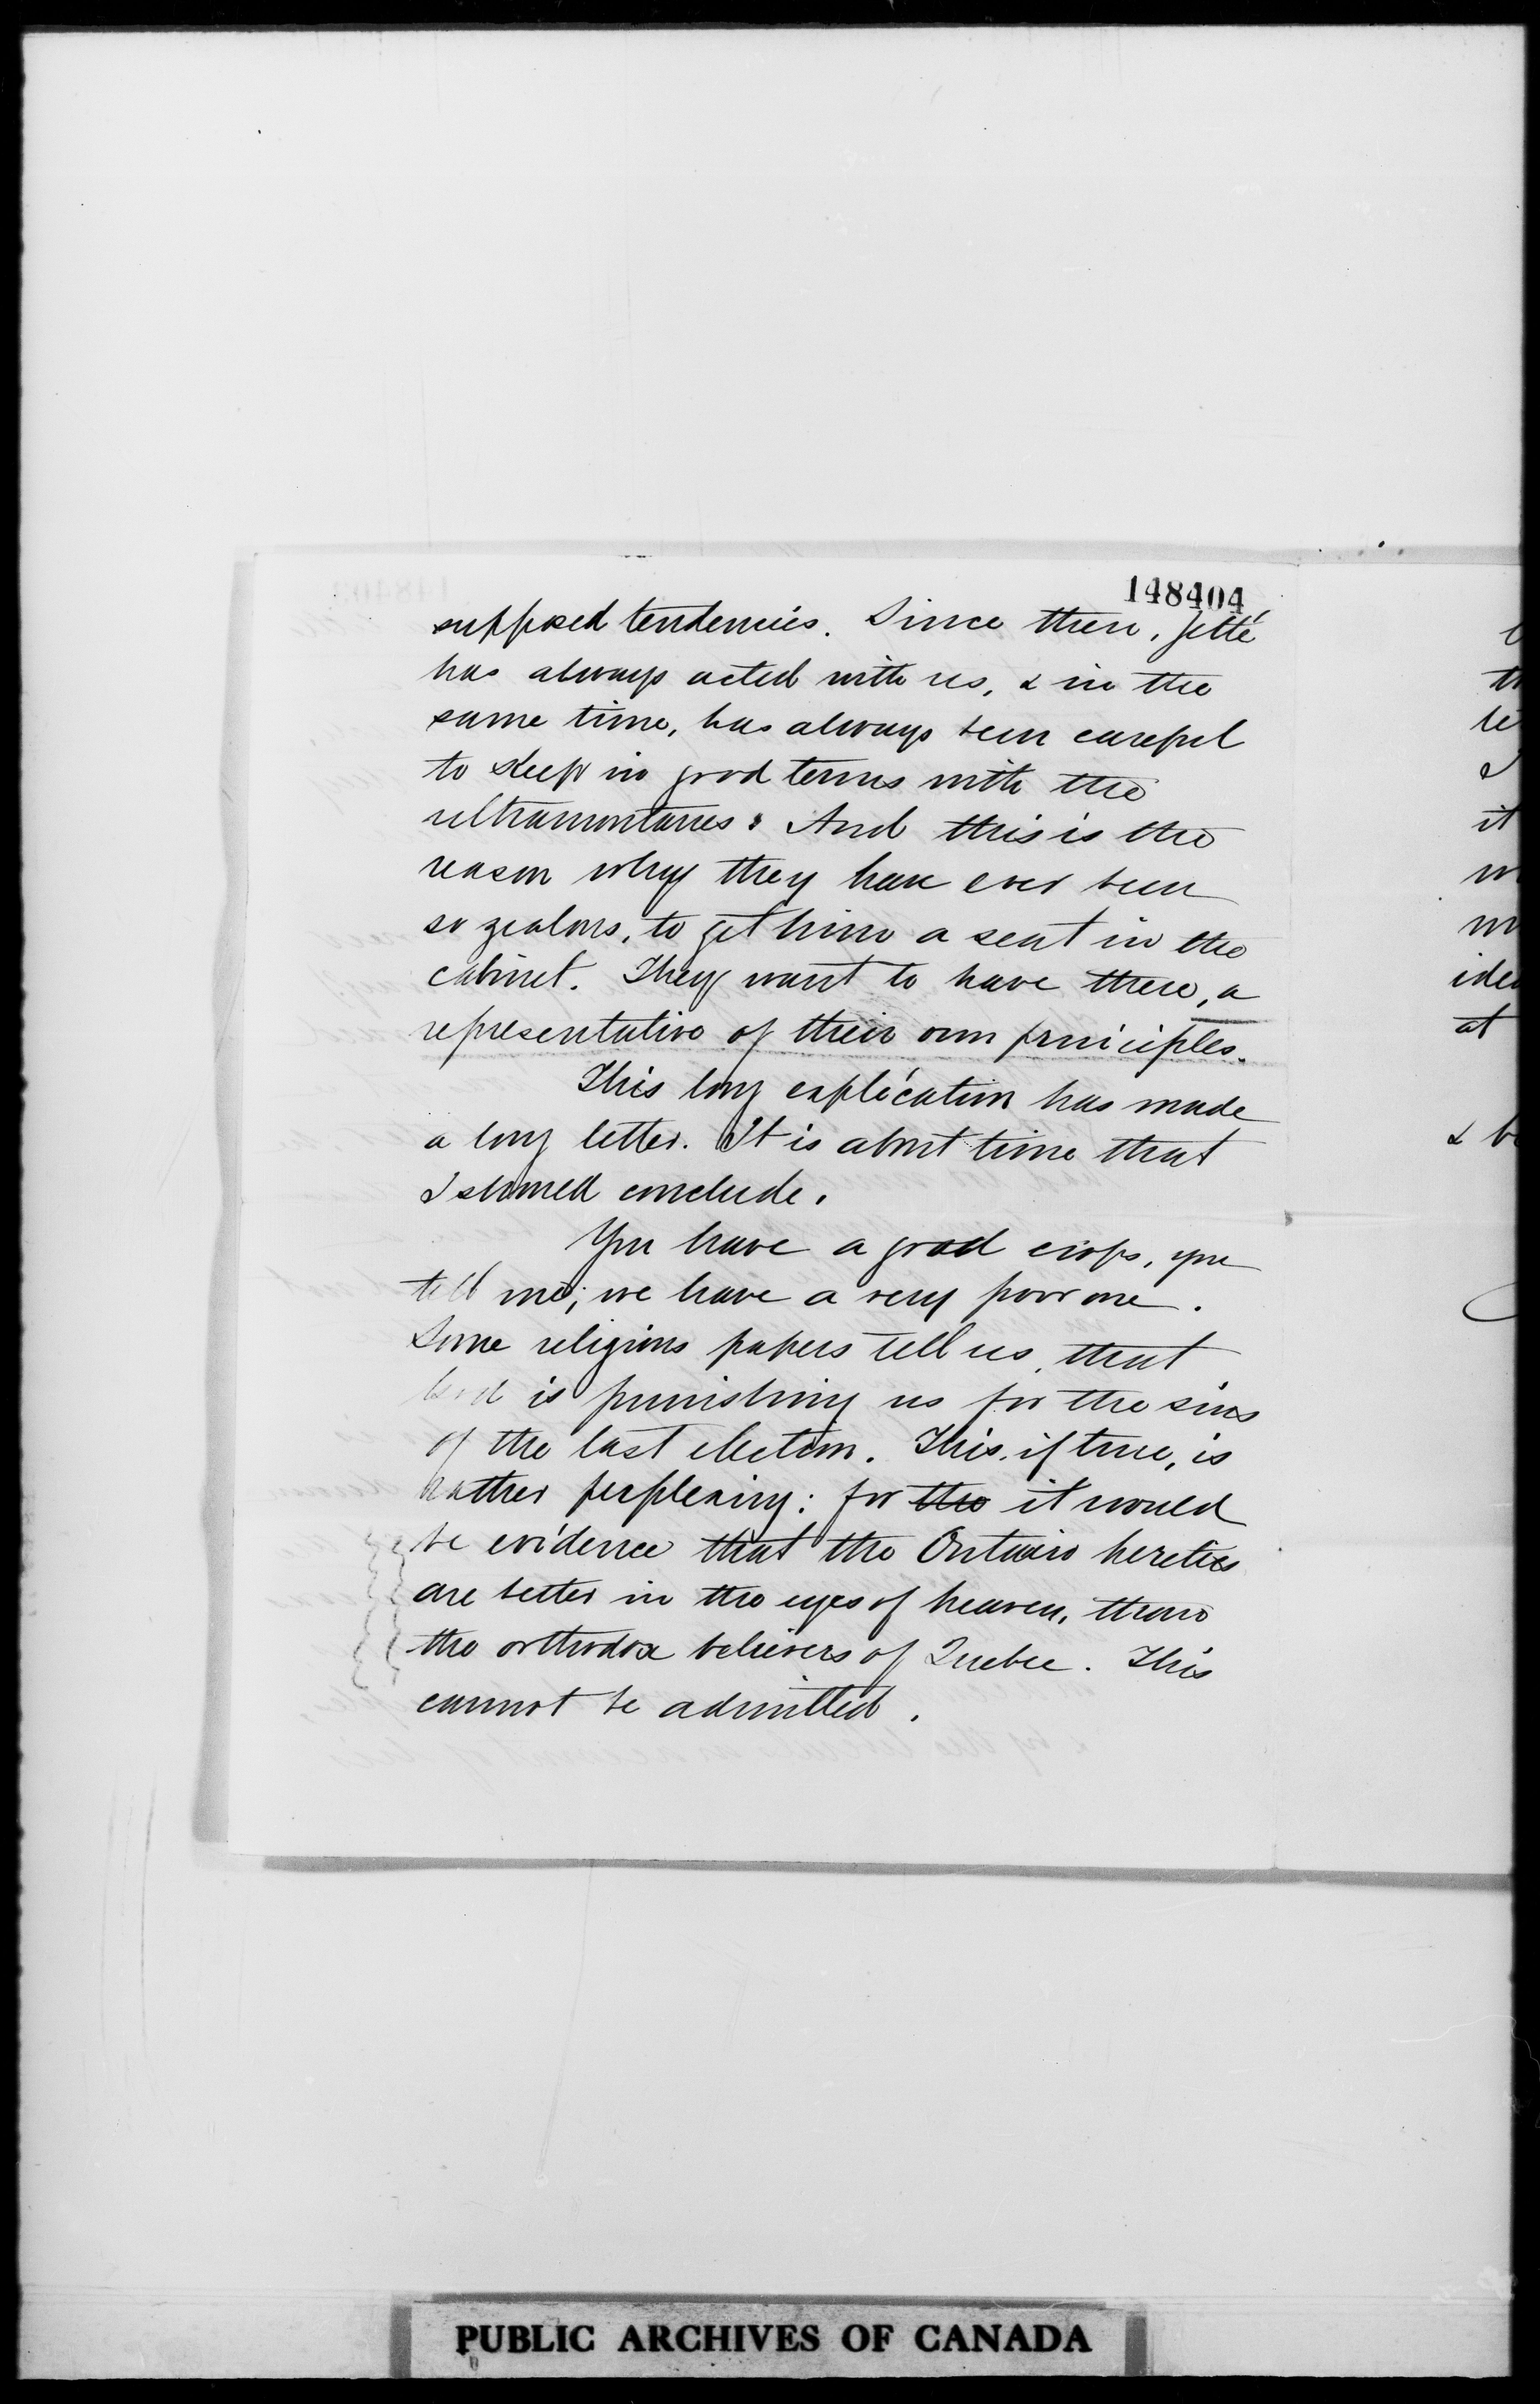 148404
supposed tendencies. Since then, Jetté
has always acted with us, & in the
same time, has always been careful
to keep in good terms with the
ultramontanes: And this is the
reason why they have ever been
so zealous, to get him a seat in the
cabinet. They want to have there, a
representative of their own principles.
This long explication has made
a long letter. It is about time that
I should conclude.
You have a good crops, you
tell me; we have a very poor one.
Some religious papers tell us, that
God is punishing us for the sins
of the last election. This, if true, is
rather perplexing: for the it would
be evidence that the Ontario heretics
are better in the eyes of heaven, than
the orthodox believers of Quebec. This
cannot be admitted.
it
ide
at
& b
PUBLIC ARCHIVES OF CANADA